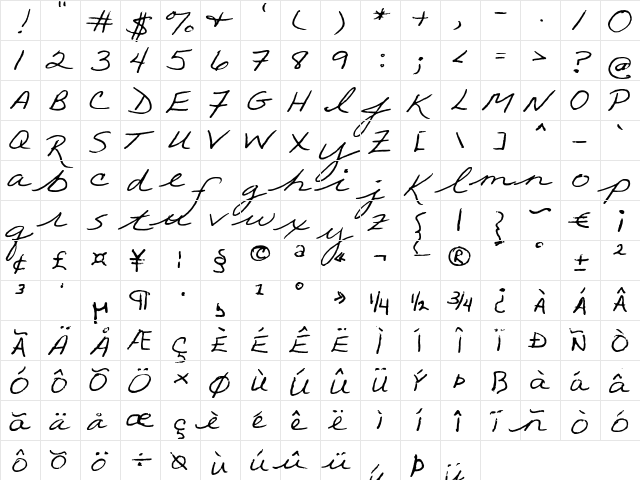 ! " # $ % & ' ( ) * + , - . / 0
1 2 3 4 5 6 7 8 9 : ; < = > ? @
A B C D E F G H I J K L M N O P
Q R S T U V W X Y Z [ \ ] ^ _ `
a b c d e f g h i j k l m n o p
q r s t u v w x y z { | } ~ € ¡
¢ £ ¤ ¥ ¦ § © ª « ¬ ® ¯ ° ± ²
³ ´ µ ¶ · ¸ ¹ º » ¼ ½ ¾ ¿ À Á Â
Ã Ä Å Æ Ç È É Ê Ë Ì Í Î Ï Ð Ñ Ò
Ó Ô Õ Ö × Ø Ù Ú Û Ü Ý Þ ß à á â
ã ä å æ ç è é ê ë ì í î ï ñ ò ó
ô õ ö ÷ ø ù ú û ü ý þ ÿ